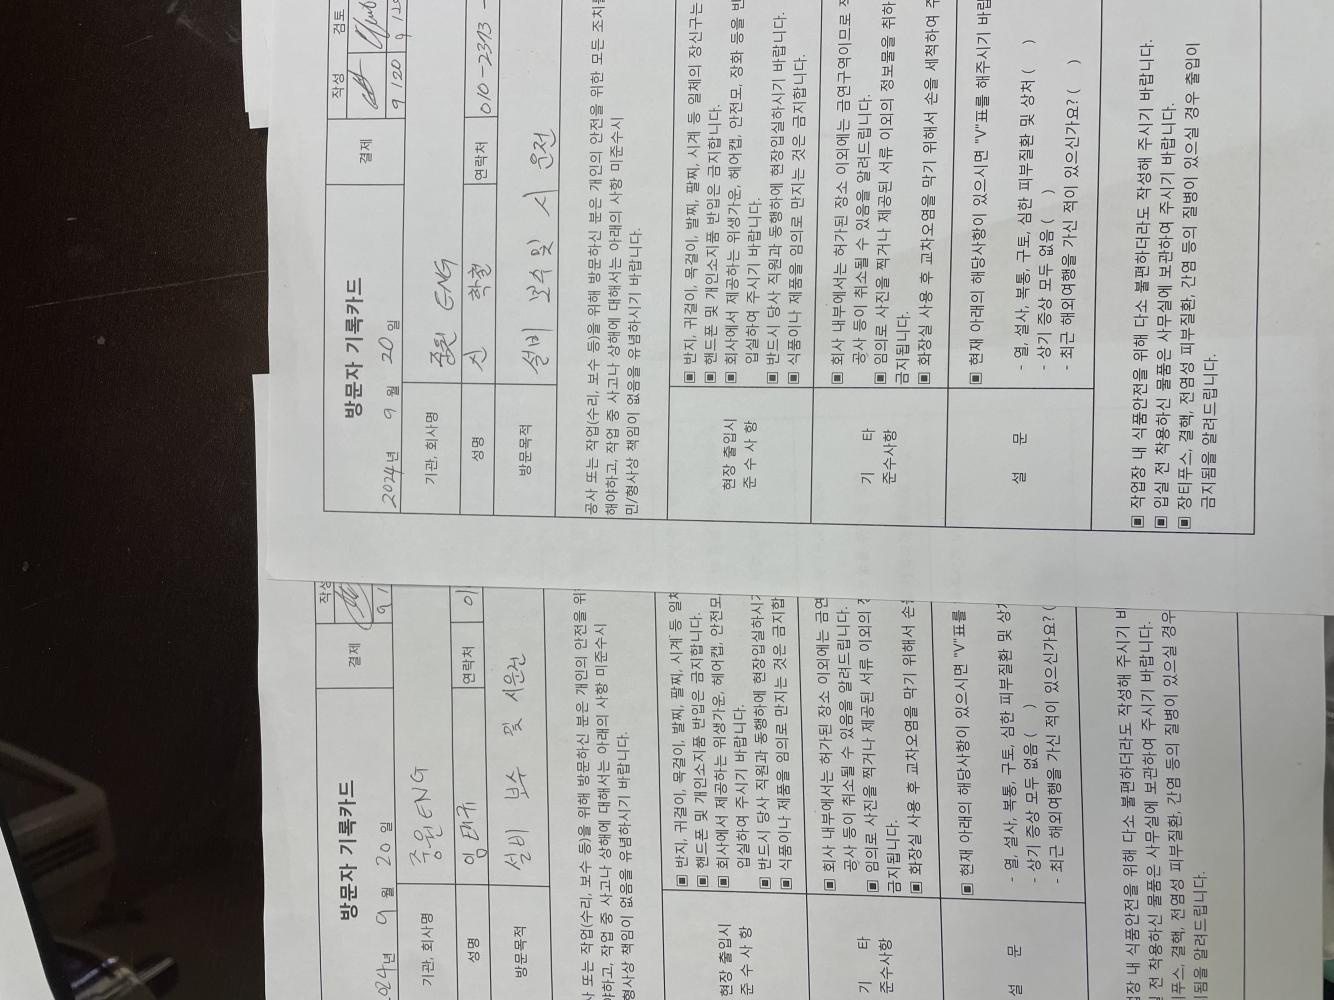 방문자 기록카드
결제
작성
검토
9 / 20
9 / 20
2024년 9월 20일
기관, 회사명
중원 ENG
성명
신 학철
연락처
010-2313-
방문목적
설비 보수 및 시 운전
공사 또는 작업(수리, 보수 등)을 위해 방문하신 분은 개인의 안전을 위한 모든 조치를
해야하고, 작업 중 사고나 상해에 대해서는 아래의 사항 미준수시
민/형사상 책임이 없음을 유념하시기 바랍니다.
현장 출입시
준 수 사 항
▣ 반지, 귀걸이, 목걸이, 발찌, 팔찌, 시계 등 일체의 장신구는
▣ 핸드폰 및 개인소지품 반입은 금지합니다.
▣ 회사에서 제공하는 위생가운, 헤어캡, 안전모, 장화 등을 반
입실하여 주시기 바랍니다.
▣ 반드시 당사 직원과 동행하에 현장입실하시기 바랍니다.
▣ 식품이나 제품을 임의로 만지는 것은 금지합니다.
기 타
준수사항
▣ 회사 내부에서는 허가된 장소 이외에는 금연구역이므로
공사 등이 취소될 수 있음을 알려드립니다.
▣ 임의로 사진을 찍거나 제공된 서류 이외의 정보물을 취하
금지됩니다.
▣ 화장실 사용 후 교차오염을 막기 위해서 손을 세척하여 주
설 문
▣ 현재 아래의 해당사항이 있으시면 "V"표를 해주시기 바랍
- 열, 설사, 복통, 구토, 심한 피부질환 및 상처 ( )
- 상기 증상 모두 없음 ( )
- 최근 해외여행을 가신 적이 있으신가요? ( )
▣ 작업장 내 식품안전을 위해 다소 불편하더라도 작성해 주시기 바랍니다.
▣ 입실 전 착용하신 물품은 사무실에 보관하여 주시기 바랍니다.
▣ 장티푸스, 결핵, 전염성 피부질환, 간염 등의 질병이 있으실 경우 출입이
금지됨을 알려드립니다.
방문자 기록카드
결제
작성
9 /
024년 9월 20일
기관, 회사명
중원 ENG
성명
임태규
연락처
01
방문목적
설비 보수 및 시운전
사 또는 작업(수리, 보수 등)을 위해 방문하신 분은 개인의 안전을 위
야하고, 작업 중 사고나 상해에 대해서는 아래의 사항 미준수시
형사상 책임이 없음을 유념하시기 바랍니다.
현장 출입시
준 수 사 항
▣ 반지, 귀걸이, 목걸이, 발찌, 팔찌, 시계 등 일체
▣ 핸드폰 및 개인소지품 반입은 금지합니다.
▣ 회사에서 제공하는 위생가운, 헤어캡, 안전모
입실하여 주시기 바랍니다.
▣ 반드시 당사 직원과 동행하에 현장입실하시기
▣ 식품이나 제품을 임의로 만지는 것은 금지합
기 타
준수사항
▣ 회사 내부에서는 허가된 장소 이외에는 금연
공사 등이 취소될 수 있음을 알려드립니다.
▣ 임의로 사진을 찍거나 제공된 서류 이외의
금지됩니다.
▣ 화장실 사용 후 교차오염을 막기 위해서 손을
설 문
▣ 현재 아래의 해당사항이 있으시면 "V"표를
- 열, 설사, 복통, 구토, 심한 피부질환 및 상처
- 상기 증상 모두 없음 ( )
- 최근 해외여행을 가신 적이 있으신가요? (
업장 내 식품안전을 위해 다소 불편하더라도 작성해 주시기 바
실 전 착용하신 물품은 사무실에 보관하여 주시기 바랍니다.
푸스, 결핵, 전염성 피부질환, 간염 등의 질병이 있으실 경우
됨을 알려드립니다.